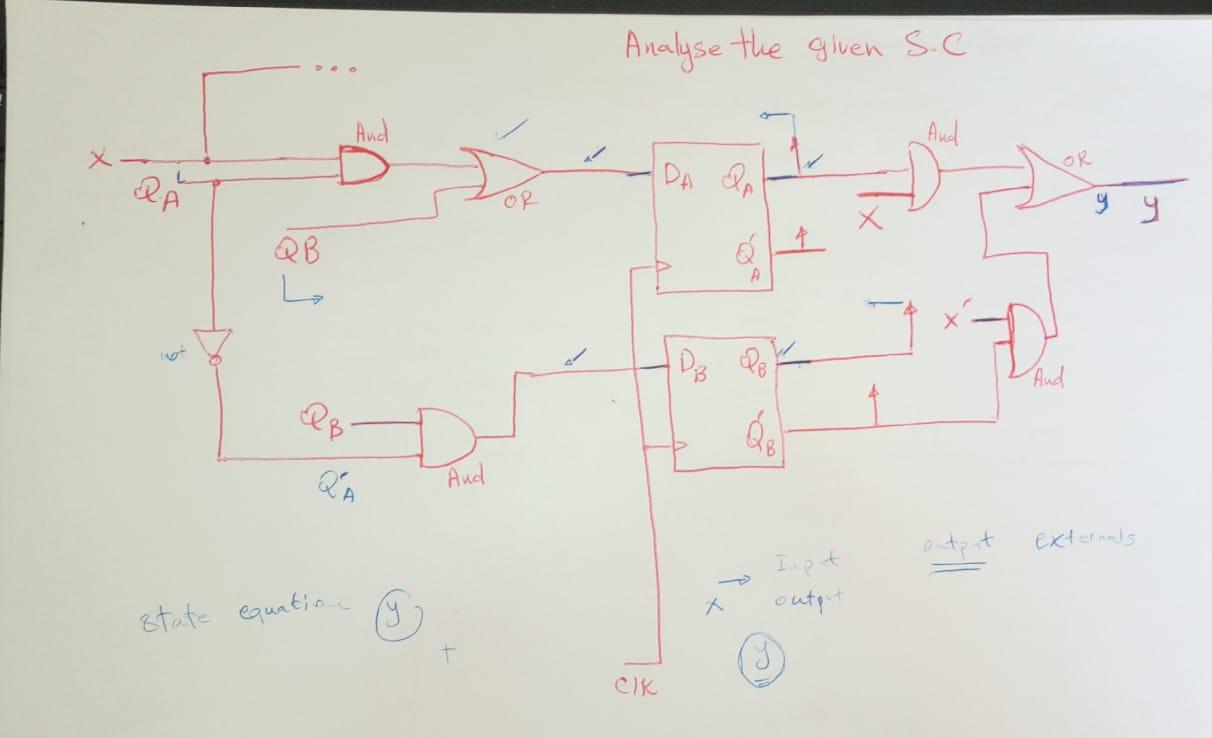 Analyse the given S.C
...
X
And
Q_A
OR
QB
D_A Q_A
Q'_A
And
X
OR
y y
not
Q_B
And
Q'_A
D_B Q_B
Q'_B
X'
And
output externals
Input
X output
y
state equation y
+
ClK